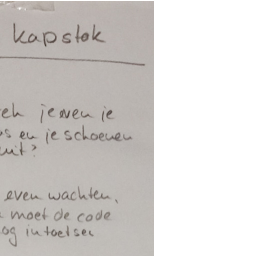 kapstok
je en je
en je schoenen
uit?
even wachten.
moet de code
intoetsen